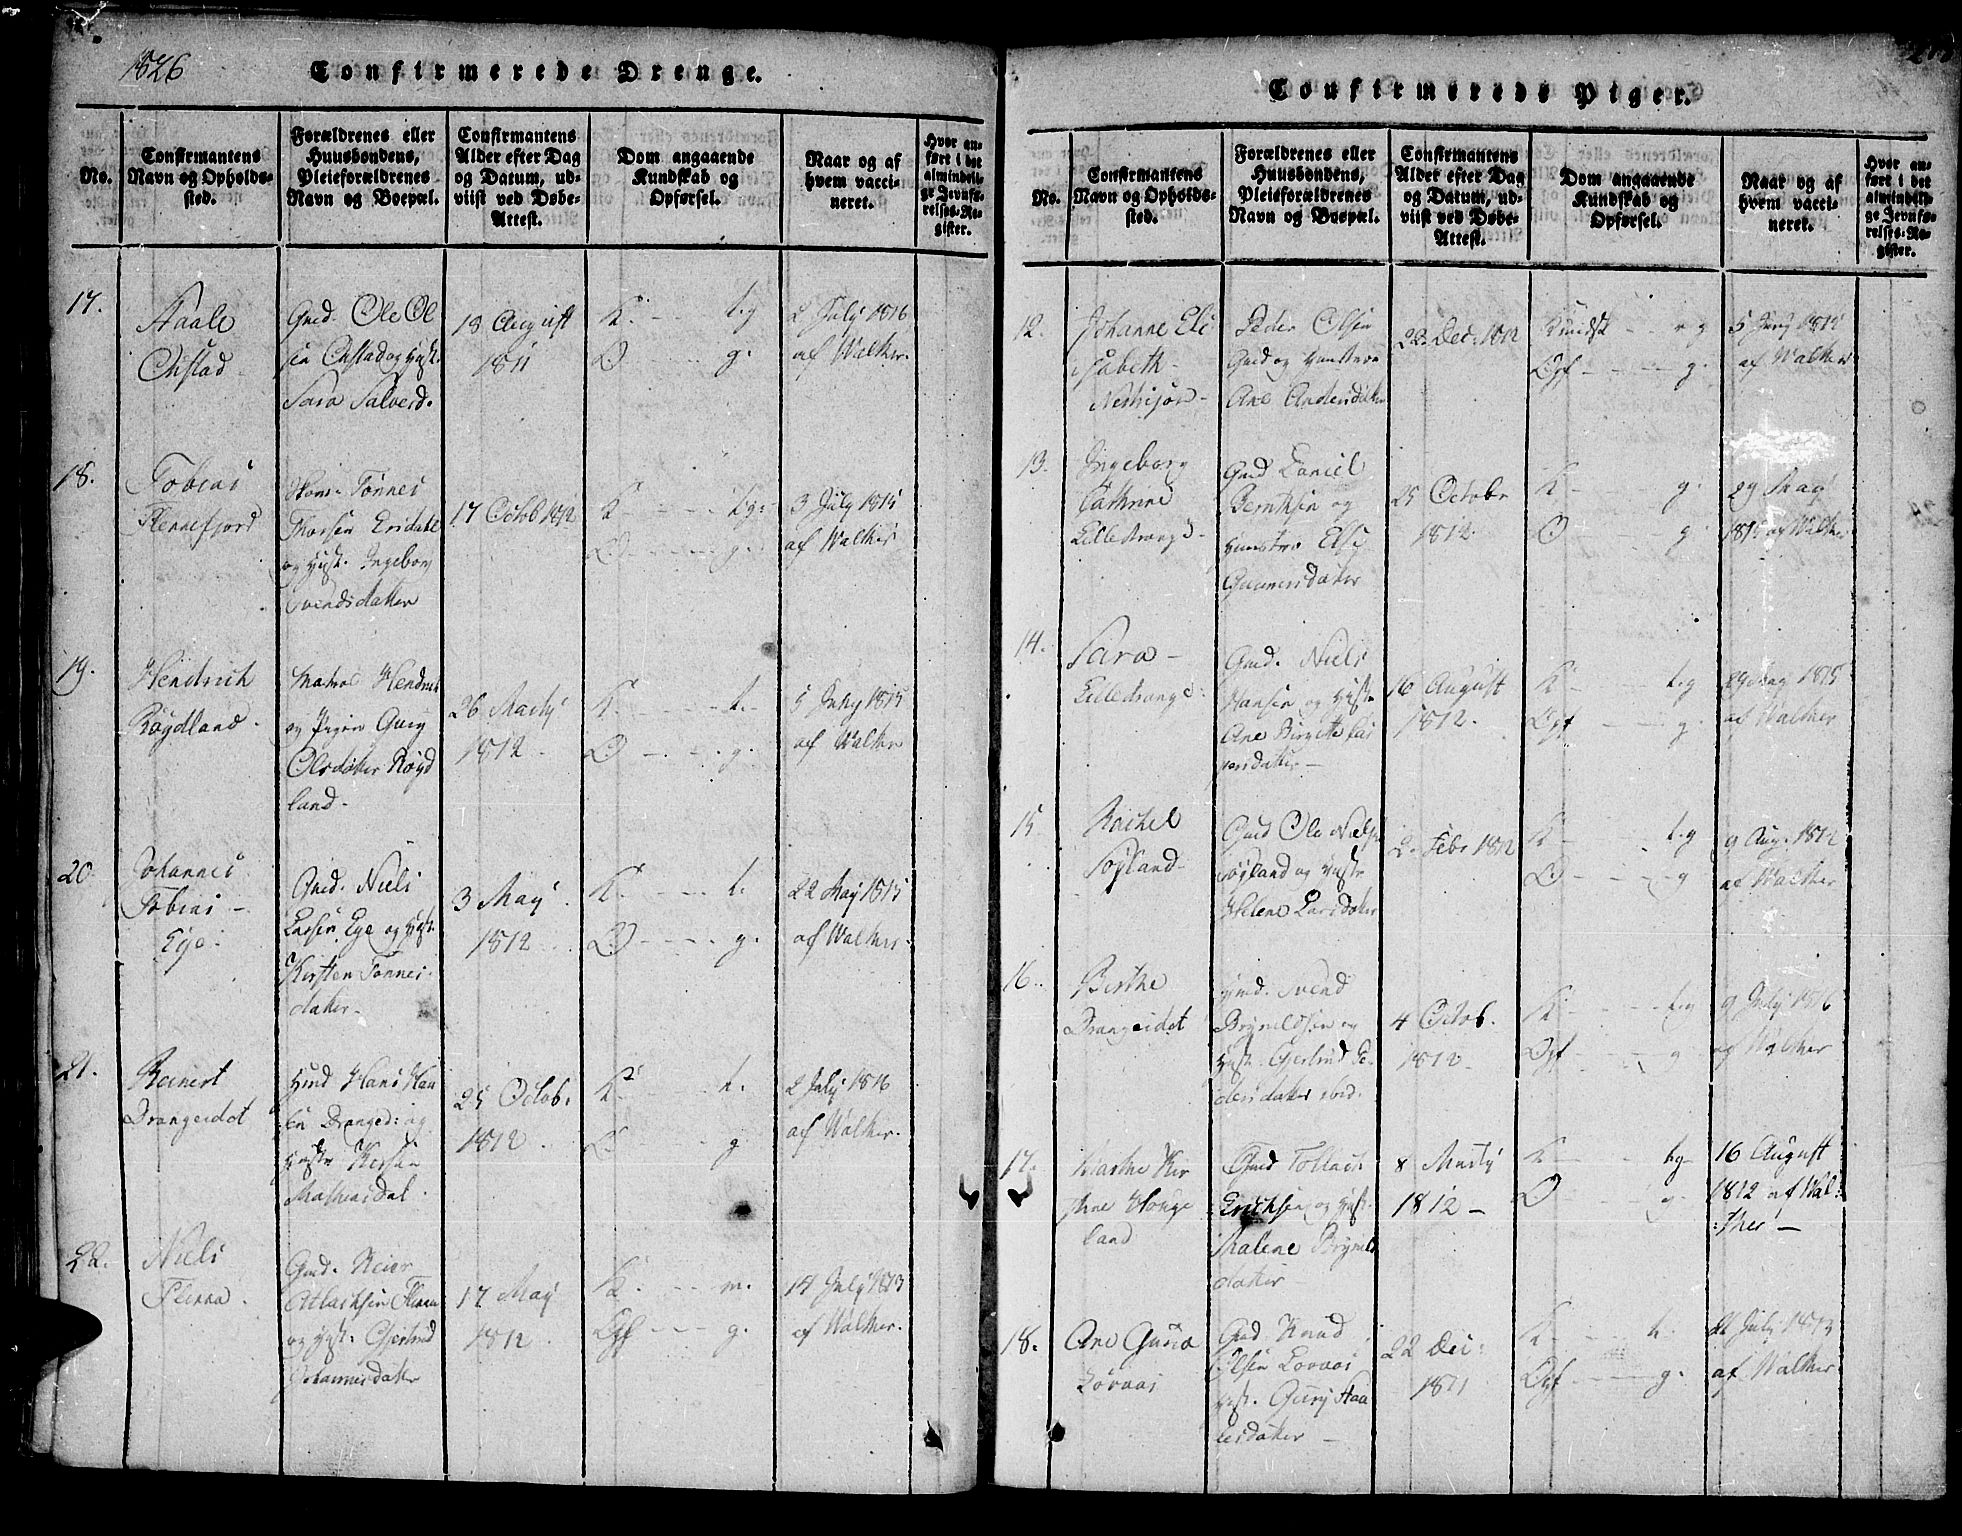 1826
Confirmerede Drenge.
No.
Confirmantens
Navn og Opholds-
sted.
Forældrenes eller
Huusbondens,
Pleieforældrenes
Navn og Boepæl.
Confirmantens
Alder efter Dag
og Datum, ud-
viist ved Døbe-
Attest.
Dom angaaende
Kundskab og
Opførsel.
Naar og af
hvem vacci-
neret.
Hvor an-
ført i det
almindeli-
ge Jevnfø-
relses-Re-
gister.
17.
Staale
Ousta
Gmd. Ole Ol
sen
Sara Salvesd.
18 August
1811
K. - - t.g
O - - g.
2 July 1816
af Walker.
18.
Tobias
Flennefjord
Tønnes
Thorsen Eridahl
og Hust. Ingebor
Svendsdatter
17 Octob 1812
K - - - t.g.
O - - - g.
3 July 1815
af Walker
19.
Hendrich
Røydland.
Matros Hendrich
og Pigen Gury
Olsdatter Røyd
land.
26 Martÿ
1812.
K. - - - t.
O - - - g.
5 July 1815
af Walker
20.
Johannes
Tobias -
Eye.
Gmd. Niels
Larsen Eye og Hust.
Kirsten Tønnes.
datter.
3 Maÿ.
1812
K. - - - t.
O - - - g.
22 Maÿ 1815
af Walker.
21.
Reinert
Drangeidet
Hmd Hans Han
sen Dranged: og
Hustr Kirsten
Mathiasdat.
25 Octob.
1812.
K - - t.
O - - g
2 July 1816
af Walker.
22.
Niels
Flenna.
Gmd. Reier
Atlachsen Flenna
og Hust. Gjertrud
Johannesdatter
17 Maÿ
1812.
K. - - m.
Opf - - g.
14 July 1813
af Walker.
Confirmerede Piger.
No.
Confirmantens
Navn og Opholds-
sted.
Forældrenes eller
Huusbondens,
Pleieforældrenes
Navn og Boepæl.
Confirmantens
Alder efter Dag
og Datum, ud-
viist ved Døbe-
Attest.
Dom angaaende
Kundskab og
Opførsel.
Naar og af
hvem vacci-
neret.
Hvor an-
ført i det
almindeli-
ge Jevnfø-
relses-Re-
gister.
12.
Johanne Eli
sabeth -
Peder Olsen
Gmd og Hustrue
Ane Andersdatter
22 Dec: 1812
Kundsk - - g
Opf - - - g.
5 Juny 1815
af Walker
13.
Ingeborg
Cathrine
Lilledrange -
Gmd Daniel
Berntsen og
Hustru Else
Gunnersdatter
25 Octobr
1812.
K - - g.
O - - g.
29 Maÿ
1815 af Walker
14.
Sara -
Lilledrange:
Gmd. Niels
Hansen og Hustr
Ane Birgitte
datter -
16 August
1812.
K - - t.g
Opf - - g.
29 Maÿ 1815
af Walker
15
Rachel
Søyland -
Gmd Ole Niels
Søyland og Hustr
Helene Larsdatter
2. Febr 1812
K - - t.g
O - - - g
9 Aug. 1812
af Walker
16.
Berthe
Drangeidet
Hmd. Svend
Brynildsen og
Hust. Gjertrud Pe
dersdatter ibid.
4 Octob.
1812
K - - - t.g
Opf - - g
9 July 1816
af Walker
17.
Marthe Kir
stine Houge
land
Gmd Tollach
Erichsen og Hust.
Malene Brynild
datter -
8 Martÿ
1812 -
K - - - tg
O - - - g.
16 August
1812 af Wal:
:ther -
18.
Ane Guria
Løvaas
Gmd Knud
Olsen Lovaas
Hust. Gurÿ Staa
lesdatter -
22 Dec:
1811
K - - - t.
Opf - - - g.
21 July 1813
af Walker